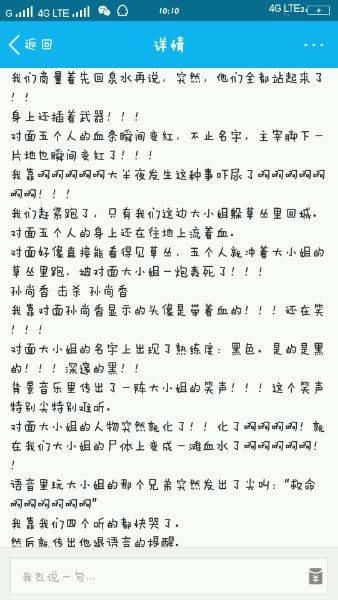 G 4G LTE 10:10 4G LTE
返回 详情 ...
我们商量着先回泉水再说，突然，他们全都站起来了
！！
身上还插着武器！！！
对面五个人的血条瞬间变红，不止名字，主宰脚下一
片地也瞬间变红了！！！
我靠啊啊啊啊啊大半夜发生这种事吓尿了啊啊啊啊啊
啊啊！！！
我们赶紧跑了，只有我们这边大小姐躲草丛里回城。
对面五个人的身上还在往地上流着血.
对面好像直接能看得见草丛，五个人就冲着大小姐的
草丛里跑，被对面大小姐一炮轰死了！！！
孙尚香 击杀 孙尚香
我靠对面孙尚香显示的头像是带着血的！！！还在笑
！！！
对面大小姐的名字上出现了熟练度：黑色。是的是黑
的！！！深邃的黑！！
背景音乐里传出了一阵大小姐的笑声！！！这个笑声
特别尖特别难听.
对面大小姐的人物突然就化了！！化了啊啊啊啊！就
在我们大小姐的尸体上变成一滩血水了啊啊啊啊啊！
！
语音里玩大小姐的那个兄弟突然发出了尖叫：“救命
啊啊啊啊啊啊”
我靠我们四个听的都快哭了.
然后就传出他退语音的提醒.
我也说一句...